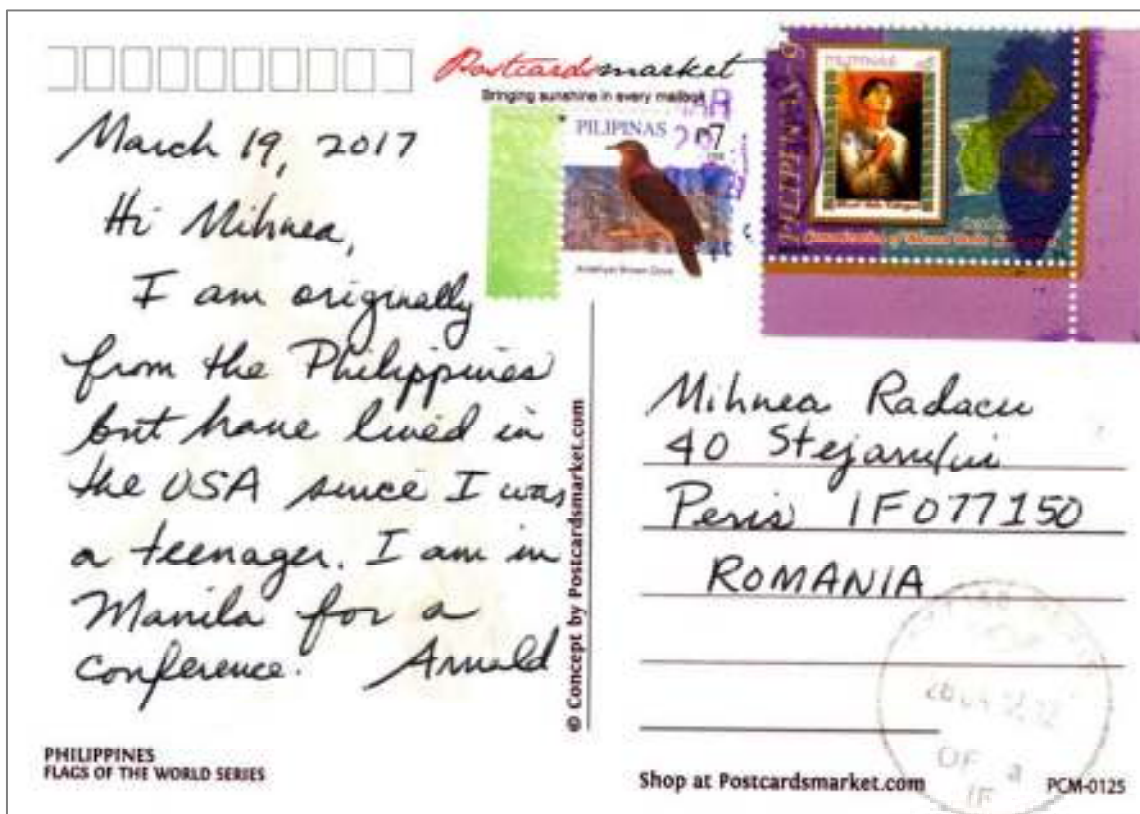 Postcardsmarket
Bringing sunshine in every mailbox
PILIPINAS
7
Amethyst Brown Dove
PILIPINAS
PILIPINAS
March 19, 2017
Hi Mihnea,
I am originally
from the Philippines
but have lived in
the USA since I was
a teenager. I am in
Manila for a
conference. Arnold
© Concept by Postcardsmarket.com
Mihnea Radacu
40
Peris IF077150
ROMANIA
PHILIPPINES
FLAGS OF THE WORLD SERIES
Shop at Postcardsmarket.com
PCM-0125
OF
IF